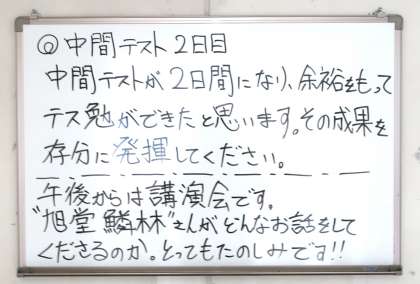 ◎中間テスト2日目
中間テストが2日間になり、余裕をもって
テス勉ができたと思います。その成果を
存分に発揮してください。
午後からは講演会です。
"旭堂鱗林"さんがどんなお話をして
くださるのか。とってもたのしみです!!